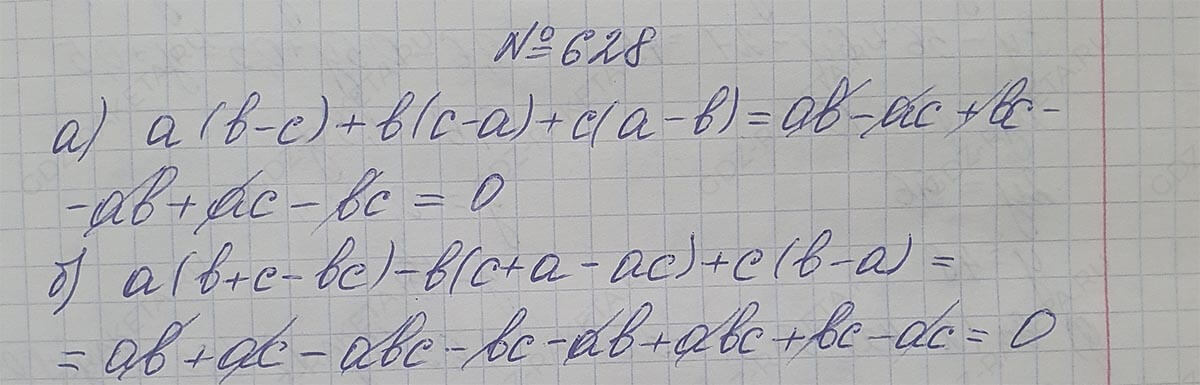 №628
а) a(b-c)+b(c-a)+c(a-b)=ab-ac+bc-
-ab+ac-bc=0
б) a(b+c-bc)-b(c+a-ac)+c(b-a)=
=ab+ac-abc-bc-ab+abc+bc-ac=0